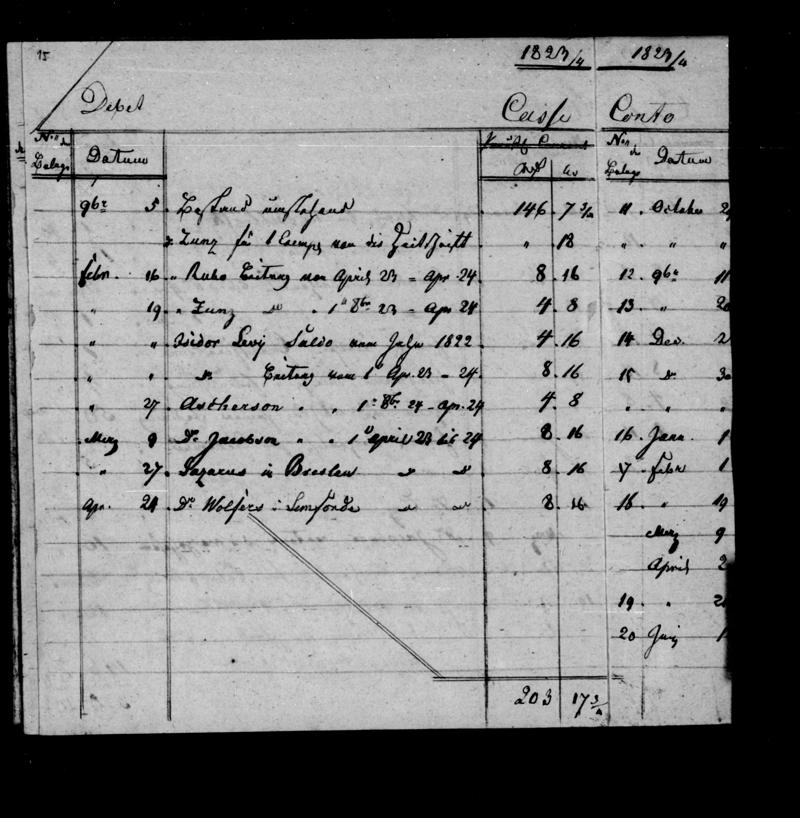 15
1823/4 1823/4
Debet Casse Conto
No. d. Belags Datum No. d. Belags Datum
9br 5. Bestand umstehend 146. 7 3/4 11. October
" Zunz für 1 Exempl. von die Zeitschrift " 18 " " "
Febr. 16 " Rubo Beitrag von April 23 - Apr. 24 8. 16 12. 9br 11
" 19 " Zunz do " 1t 8br 23 - Apr. 24 4. 8 13. "
" " Isidor Levij Saldo vom Jahr 1822 4. 16 14 Dec. 2
" " do Beitrag vom 1t Apr. 23 - 24. 8. 16 15 d. 30
" 27. Ascherson " " 1t 8br 24 - Apr. 24 4. 8 " " "
Merz 9 Dr. Jacobson " " 1t April 23 bis 24 8. 16 16. Janr. 1
" 27. Lazarus in Breslau do do 8. 16 17 Febr 1
Apr. 24 Dr. Wolfers i. Lemförde do do 8. 16 18. " 19
Merz 9
April 2
19. "
20 Junij 1
203 17 3/4